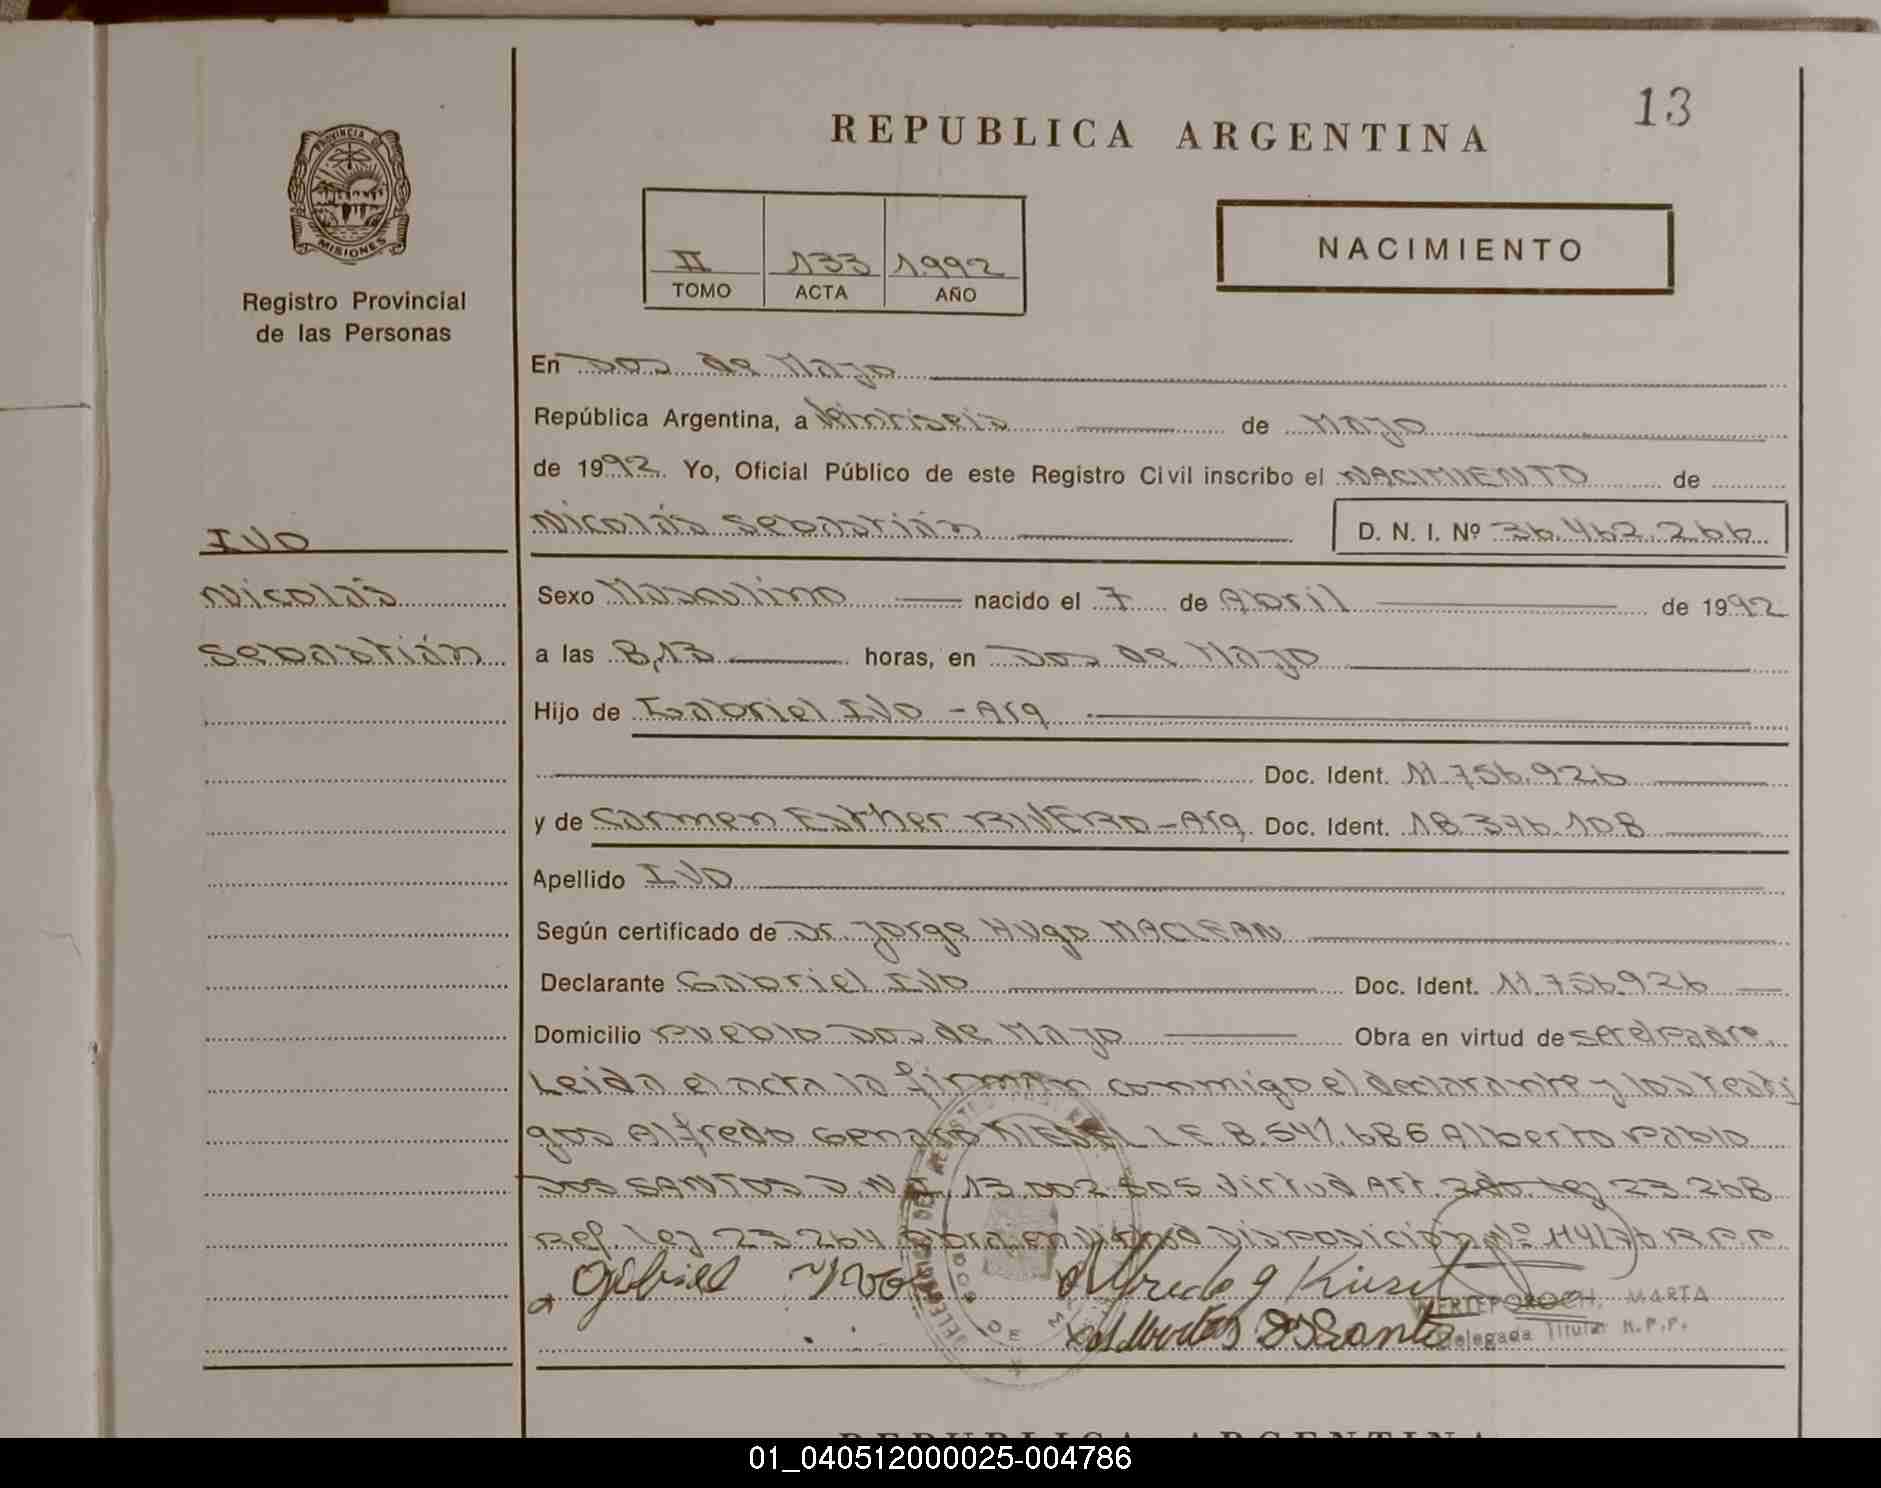 13
REPUBLICA ARGENTINA
PROVINCIA DE
MISIONES
Registro Provincial
de las Personas
II 133 1992
TOMO ACTA AÑO
NACIMIENTO
En Dos de Mayo
República Argentina, a Veintiseis de Mayo
de 1992. Yo, Oficial Público de este Registro Civil inscribo el NACIMIENTO de
Nicolás Sebastián D. N. I. Nº 36.462.266
IVO
Nicolás
Sebastián
Sexo Masculino nacido el 7 de Abril de 1992
a las 8,13 horas, en Dos de Mayo
Hijo de Gabriel IVO - Arg
Doc. Ident. 11.756.926
y de Carmen Esther RIVERO - Arg. Doc. Ident. 18.376.108
Apellido IVO
Según certificado de Dr. Jorge Hugo MACLEAN
Declarante Gabriel IVO Doc. Ident. 11.756.926
Domicilio Pueblo Dos de Mayo Obra en virtud de ser el Padre.
Leida el acta la firman conmigo el declarante y los testi
gos Alfredo Genaro KIESEL L.E. 8.541.686 Alberto Pablo
DOS SANTOS D.N.I. 13.002.805 Virtud Art. 2do. Ley 23.268
Ref. Ley 23.264 Obra en Virtud Disposición Nº 114/76 R.P.P.
Gabriel Ivo Alfredo G Kiesel
Alberto D Santos
WERTEPOROCH, MARTA
Delegada Titular R.P.P.
REPUBLICA ARGENTINA
01_040512000025-004786